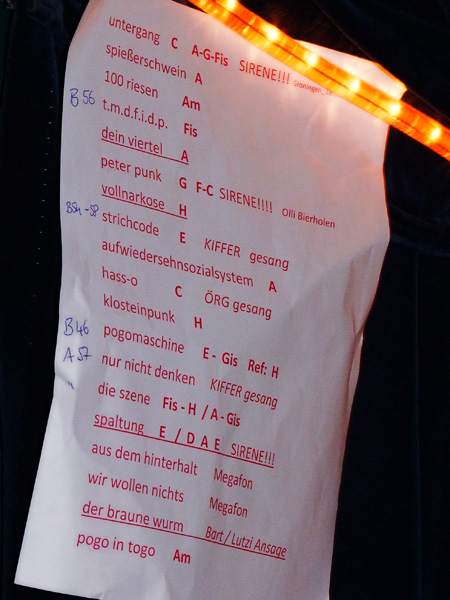 untergang C A-G-Fis SIRENE!!!
spießerschwein A
100 riesen Am
B 56 t.m.d.f.i.d.p. Fis
dein viertel A
peter punk G F-C SIRENE!!!! Olli Bierholen
vollnarkose H
B54-58 strichcode E KIFFER gesang
aufwiedersehnsozialsystem A
hass-o C ÖRG gesang
klosteinpunk H
B46 pogomaschine E - Gis Ref: H
A 57 nur nicht denken KIFFER gesang
" die szene Fis - H / A - Gis
spaltung E / D A E SIRENE!!!
aus dem hinterhalt Megafon
wir wollen nichts Megafon
der braune wurm Bart / Lutzi Ansage
pogo in togo Am